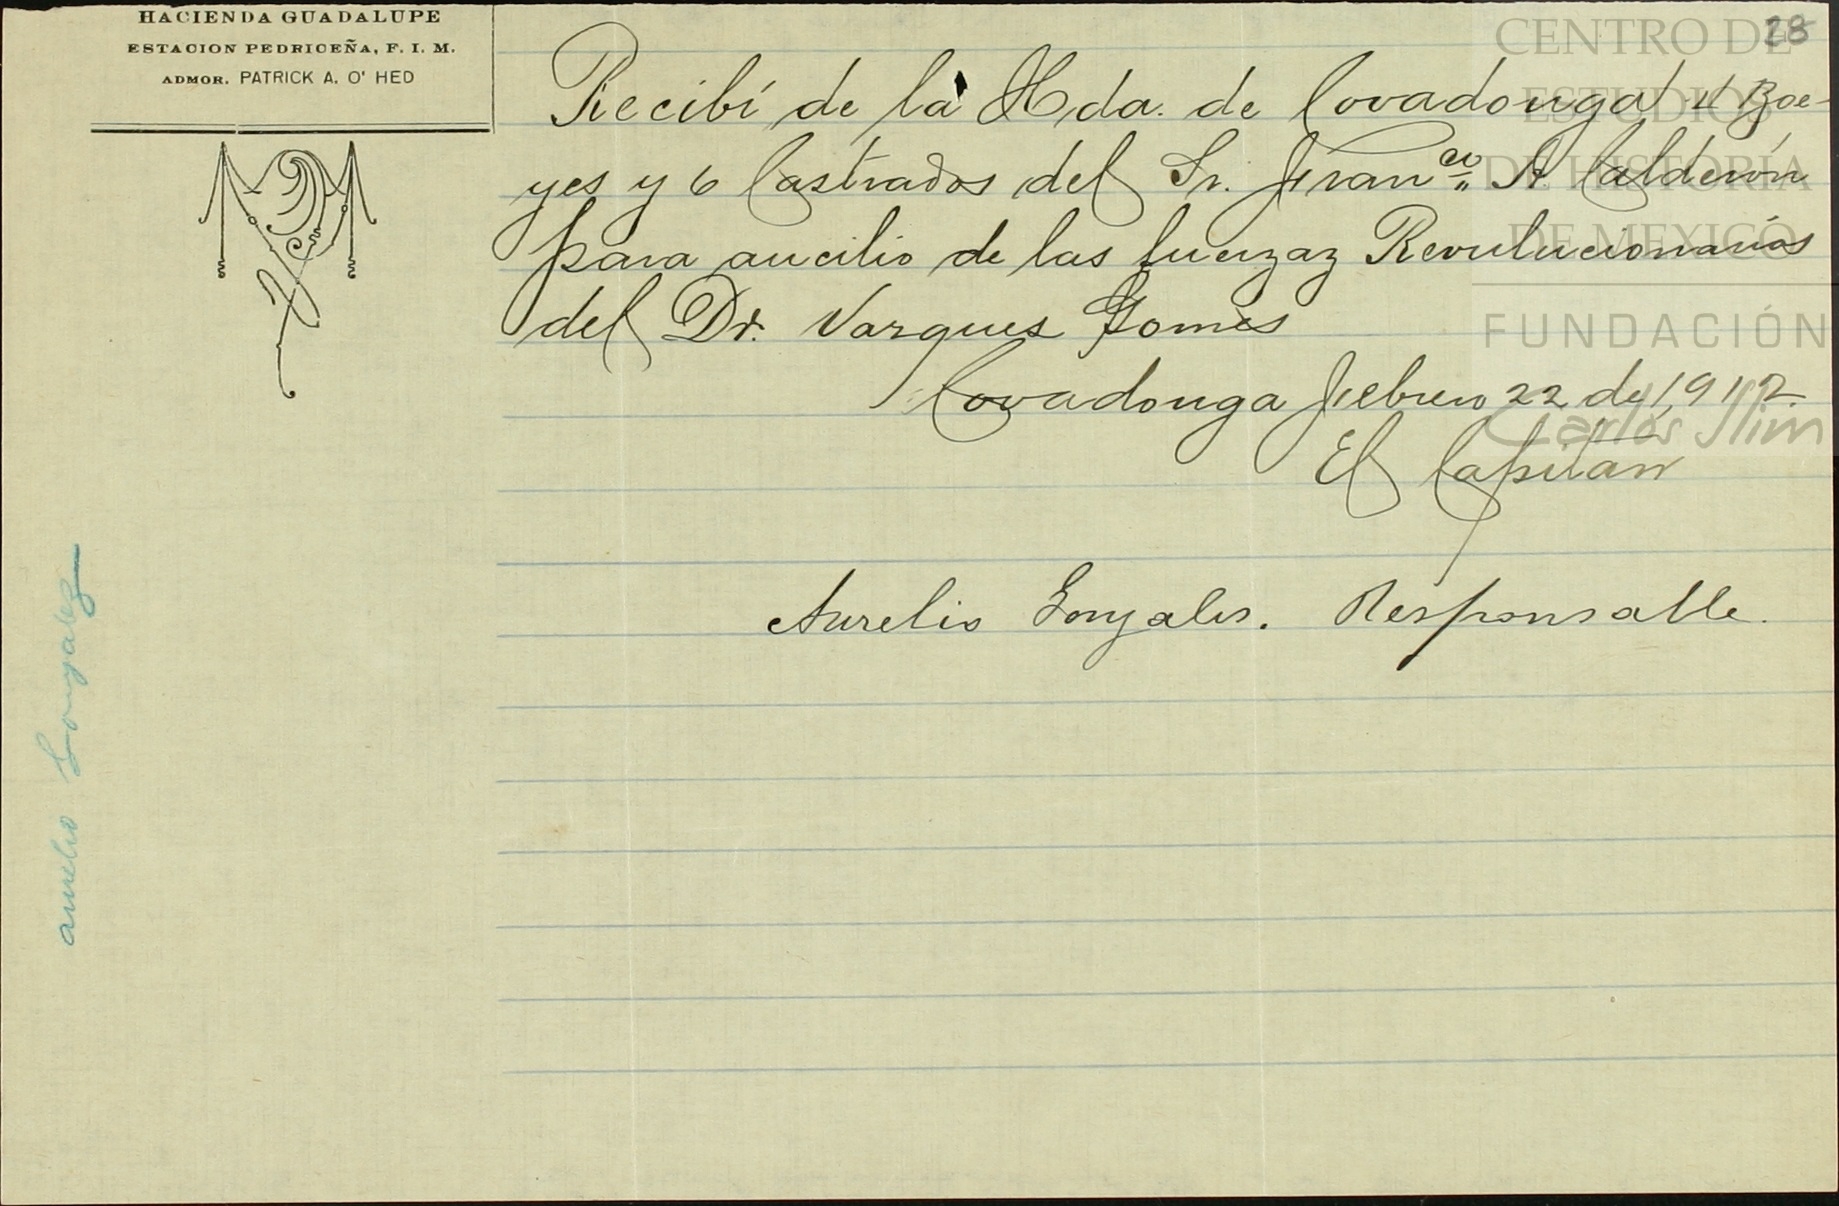 HACIENDA GUADALUPE
ESTACION PEDRICEÑA, F. I. M.
ADMOR. PATRICK A. O' HED
28
Recibí de la Hda. de Covadonga 4 Boe-
yes y 6 Castrados del Sr. Franco A Calderón
para aucilio de las fuerzaz Revulucionarias
del Dr. Vazques Gomes
Covadonga Febrero 22 de 1,912.
El Capitan
Aurelio Gonzales. Responsable.
aurelio Gonzalez
CENTRO DE
ESTUDIOS
DE HISTORIA
DE MEXICO
FUNDACIÓN
Carlos Slim